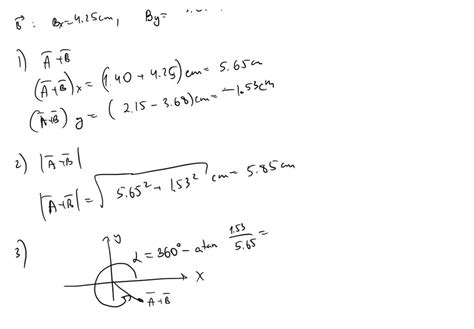 B⃗ : Bx=4.25cm, By=
1) A⃗+B⃗
(A⃗+B⃗)x = (1.40 + 4.25)cm = 5.65cm
(A⃗+B⃗)y = (2.15 - 3.68)cm = -1.53cm
2) |A⃗+B⃗|
|A⃗+B⃗| = √5.65² + 1.53² cm = 5.85cm
3)
y
α = 360° - atan 1.53/5.65 =
x
A⃗+B⃗